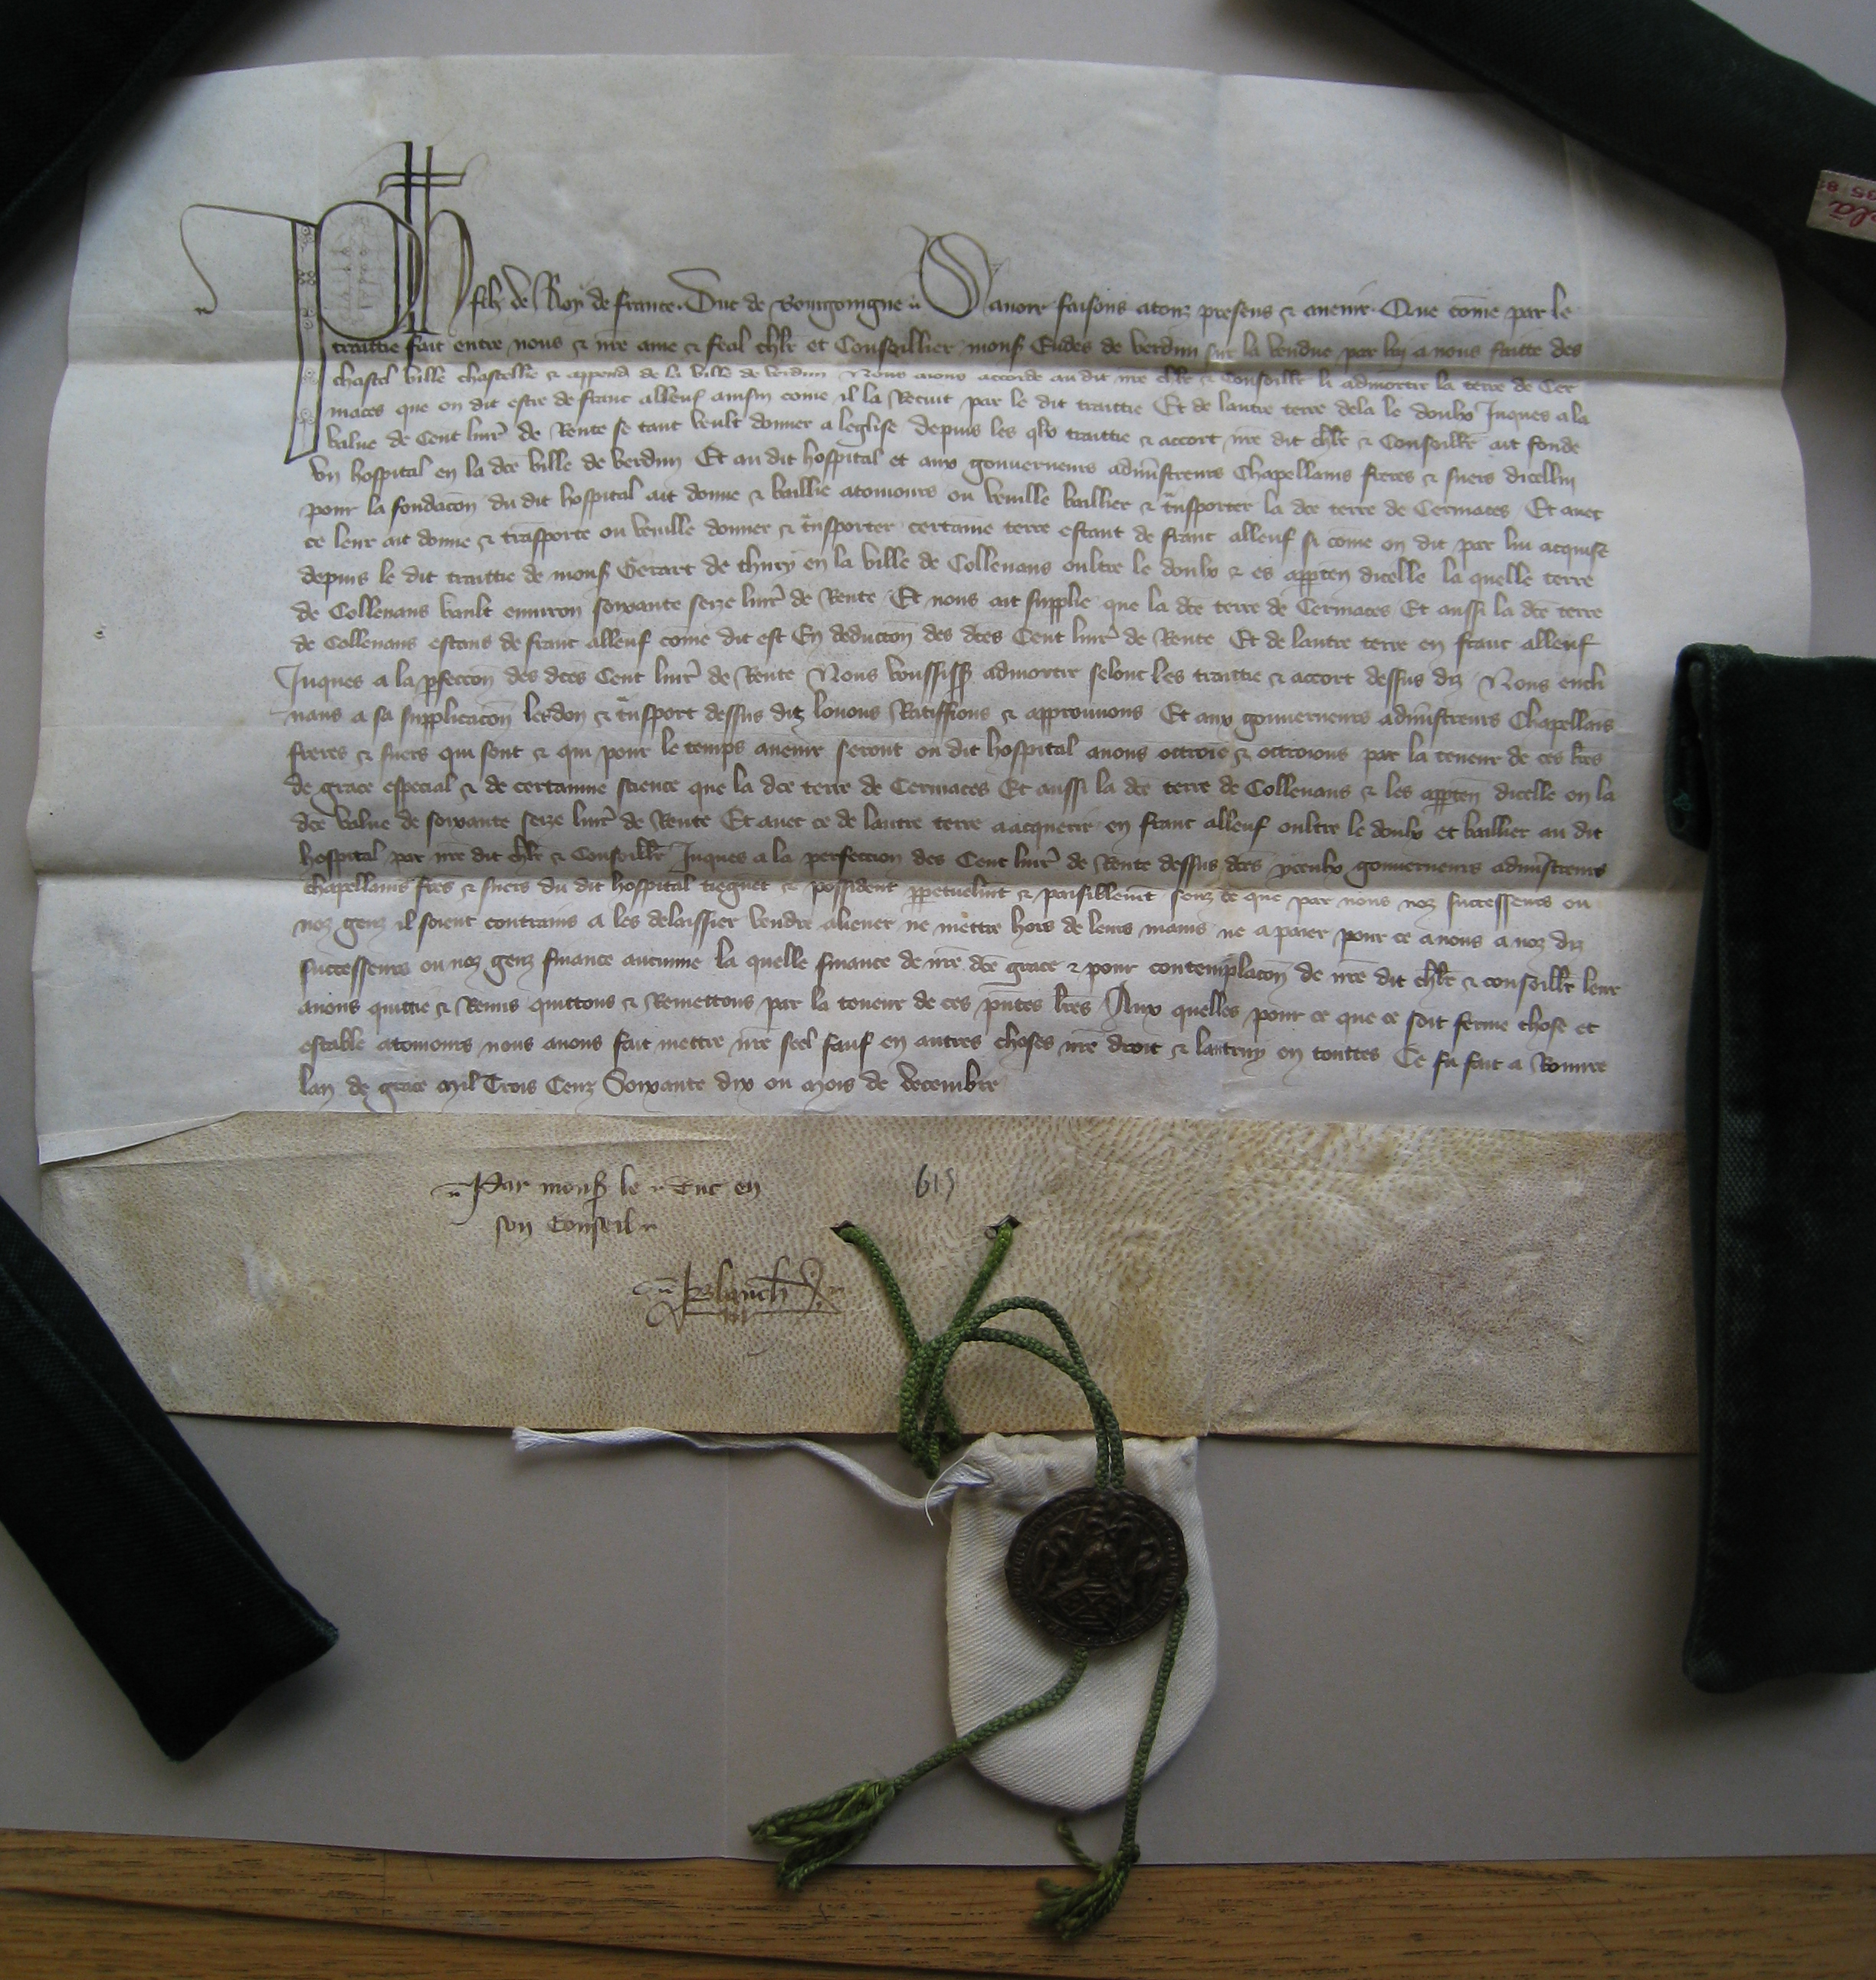 Ph filz de Roy de france. Duc de Bourgoingne Sauoir faisons atouz presens & auenir. Que cõme par le
traittie fait entre nous & nr̃e ame & feal chlr̃ et Conseillier mons Eudes de verdun sur la vendue par luy a nous faitte des
chastel ville chastellie & append de la ville de verdun Nous aions accorde au dit nr̃e chlr̃ & Conseillr̃ li admortir la terre de Cer
maces que on dit estre de franc alleuf ainsin come il la Recuit par le dit traittie Et de lautre terre dela le doubx Juques a la
value de Cent liur̃ de Rente se tant veult donner a leglise depuis les qlx traittie & accort nr̃e dit chlr̃ & Conseillr̃ ait fonde
vn hospital en la dc̃e ville de verdun Et au dit hospital et aux gouuerneurs admĩstreurs Chapellains freres & suers dicellui
pour la fondacõn du dit hospital ait donne & baillie atouiours ou veuille baillier & tñsporter la dc̃e terre de Cermaces Et auec
ce leur ait donne & trãsporte ou veuille donner & tñsporter certaine terre estant de franc alleuf si cõme on dit par lui acquise
depuis le dit traittie de mons Gerart de thury en la ville de Collenans oultre le doubx & es apptẽn dicelle la quelle terre
de Collenans vault enuiron soixante seize liur̃ de Rente Et nous ait supplie que la dc̃e terre de Cermaces Et aussi la dc̃e terre
de Collenans estans de franc alleuf cõme dit est En deduccõn des dc̃es Cent liur̃ de Rente Et de lautre terre en franc alleuf
Juques a la pfeccõn des dc̃es Cent liur̃ de Rente Nous voussiss admortir selonc les traittie & accort dessus diz Nous encli
nans a sa supplicacõn lesdon & tñsport dessus diz louons Ratiffions & approuuons Et aux gouuerneurs admĩstreurs Chapellais
freres & suers qui sont & qui pour le temps auenir seront ou dit hospital auons ottroie & ottroions par la teneur de ces lr̃es
de grace especial & de certainne science que la dc̃e terre de Cermaces Et aussi la dc̃e terre de Collenans & les apptẽn dicelle en la
dc̃e value de soixante seize liur̃ de Rente Et auec ce de lautre terre aacquerir en franc alleuf oultre le doubx et baillier au dit
hospital par nr̃e dit chlr̃ & Conseillr̃ Juques a la perfeccion des Cent liur̃ de Rente dessus dc̃es yceulx gouuerneurs admĩstreurs
chapellains fres & suers du dit hospital tiegnẽt & possident ppetuelmt & paisiblemt senz ce que par nous noz successeurs ou
noz genz il soient contrains a les delaissier vendre aliener ne mettre hors de leurs mains ne a paier pour ce a nous a noz diz
successeurs ou noz genz finance aucunne la quelle finance de nr̃e dc̃e grace & pour contemplacõn de nr̃e dit chlr̃ & conseillr̃ leur
auons quittie & Remis quittons & Remettons par la teneur de ces pñtes lr̃es Aux quelles pour ce que ce soit ferme chose et
estable atouiours nous auons fait mettre nr̃e seel sauf en autres choses nr̃e droit & lautruy en touttes Ce fu fait a Rouure
lan de grace mil Trois Cenz Soixante dix ou mois de decembre
Par mons le Duc en
son Conseil
615
Blanch